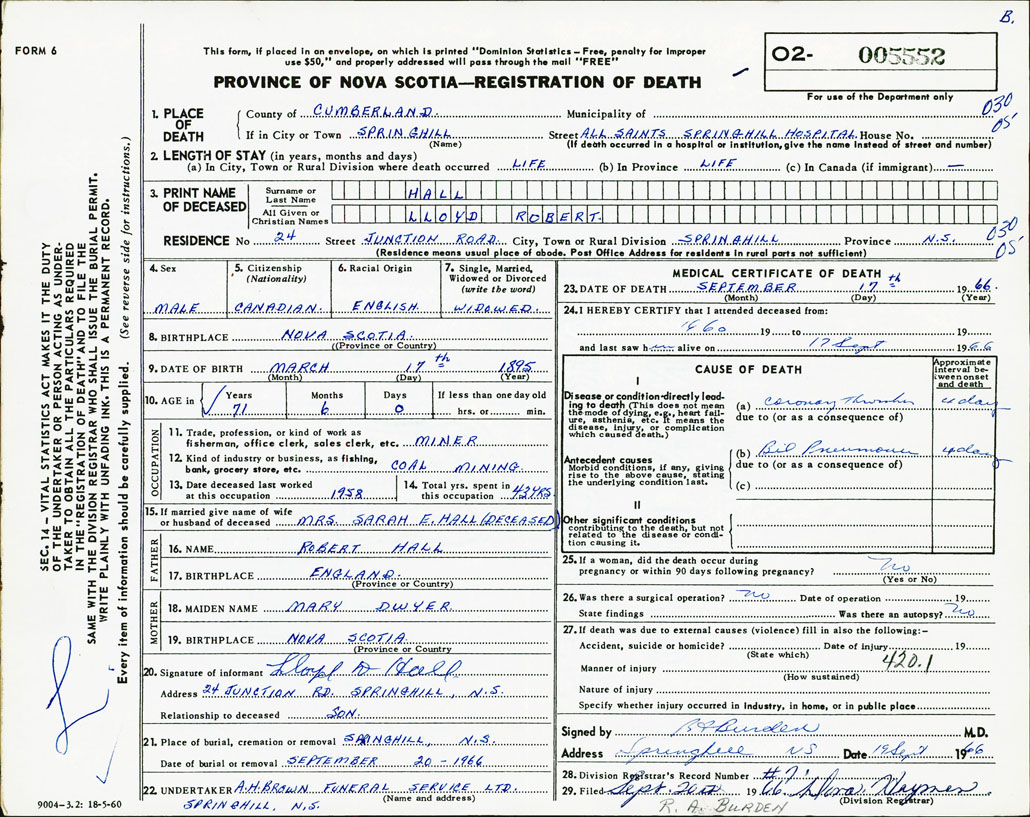 B.
FORM 6
This form, if placed in an envelope, on which is printed "Dominion Statistics – Free, penalty for improper
use $50," and properly addressed will pass through the mail "FREE"
PROVINCE OF NOVA SCOTIA—REGISTRATION OF DEATH
O2- 005552
For use of the Department only
030
05
1. PLACE OF DEATH
County of CUMBERLAND. Municipality of
If in City or Town SPRINGHILL Street ALL SAINTS SPRINGHILL HOSPITAL House No.
(Name) (If death occurred in a hospital or institution, give the name instead of street and number)
2. LENGTH OF STAY (in years, months and days)
(a) In City, Town or Rural Division where death occurred LIFE (b) In Province LIFE (c) In Canada (if immigrant) —
3. PRINT NAME OF DECEASED
Surname or Last Name HALL
All Given or Christian Names LLOYD ROBERT
030
05
RESIDENCE No 24 Street JUNCTION ROAD City, Town or Rural Division SPRINGHILL Province N.S.
(Residence means usual place of abode. Post Office Address for residents in rural parts not sufficient)
4. Sex MALE
5. Citizenship (Nationality) CANADIAN.
6. Racial Origin ENGLISH
7. Single, Married, Widowed or Divorced (write the word) WIDOWED.
8. BIRTHPLACE NOVA SCOTIA.
((Province or Country)
9. DATE OF BIRTH MARCH 17th 1895
(Month) (Day) (Year)
10. AGE in Years 71 Months 6 Days 0 If less than one day old hrs. or min.
OCCUPATION
11. Trade, profession, or kind of work as
fisherman, office clerk, sales clerk, etc. MINER
12. Kind of industry or business, as fishing,
bank, grocery store, etc. COAL MINING.
13. Date deceased last worked at this occupation 1958
14. Total yrs. spent in this occupation 42 YRS
15. If married give name of wife
or husband of deceased MRS. SARAH E. HALL (DECEASED)
FATHER
16. NAME ROBERT HALL
17. BIRTHPLACE ENGLAND.
(Province or Country)
MOTHER
18. MAIDEN NAME MARY DWYER
19. BIRTHPLACE NOVA SCOTIA.
(Province or Country)
20. Signature of informant Lloyd D Hall
Address 24 JUNCTION RD. SPRINGHILL, N.S.
Relationship to deceased SON.
21. Place of burial, cremation or removal SPRINGHILL, N.S.
Date of burial or removal SEPTEMBER 20 - 1966
22. UNDERTAKER A.H. BROWN FUNERAL SERVICE LTD.
(Name and address)
SPRINGHILL, N.S.
MEDICAL CERTIFICATE OF DEATH
23. DATE OF DEATH SEPTEMBER 17th 1966.
(Month) (Day) (Year)
24. I HEREBY CERTIFY that I attended deceased from:
1960 19 to 19
and last saw him alive on 17 Sept 1966
CAUSE OF DEATH
Approximate interval between onset and death
I
Disease or condition directly leading to death (This does not mean the mode of dying, e.g., heart failure, asthenia, etc. It means the disease, injury, or complication which caused death.)
(a) Coronary 4 day
due to (or as a consequence of)
Antecedent causes
Morbid conditions, if any, giving rise to the above cause, stating the underlying condition last.
(b) Bil Pneumonia 4 day
due to (or as a consequence of)
(c)
II
Other significant conditions
contributing to the death, but not related to the disease or condition causing it.
25. If a woman, did the death occur during
pregnancy or within 90 days following pregnancy? No
(Yes or No)
26. Was there a surgical operation? No Date of operation 19
State findings Was there an autopsy? No
27. If death was due to external causes (violence) fill in also the following:–
Accident, suicide or homicide? Date of injury 19
(State which)
420.1
Manner of injury
(How sustained)
Nature of injury
Specify whether injury occurred in Industry, in home, or in public place
Signed by RABurden M.D.
Address Springhill NS Date 19 Sept 1966
28. Division Registrar's Record Number #71
29. Filed Sept. 20th 1966
(Division Registrar)
R. A. BURDEN
SEC. 14 – VITAL STATISTICS ACT MAKES IT THE DUTY
OF THE UNDERTAKER OR PERSON ACTING AS UNDER-
TAKER TO OBTAIN ALL THE PARTICULARS REQUIRED
IN THE "REGISTRATION OF DEATH" AND TO FILE THE
SAME WITH THE DIVISION REGISTRAR WHO SHALL ISSUE THE BURIAL PERMIT.
WRITE PLAINLY WITH UNFADING INK. THIS IS A PERMANENT RECORD.
Every item of information should be carefully supplied. (See reverse side for instructions.)
9004–3.2: 18-5-60